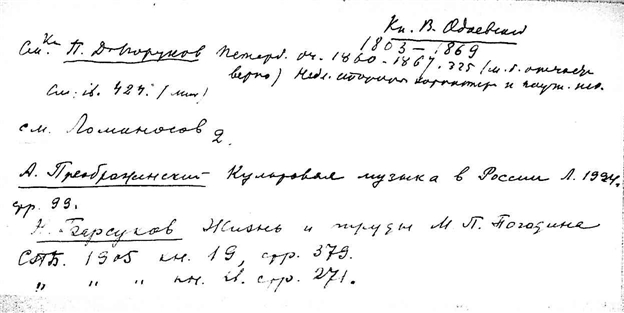 Кн. В. Одоевский
1803 – 1869
См. Кн П. Долгоруков Петерб. оч. 1860–1867. 325 (м.б. отчасти
верно) Недостаточн характер и научн.
См. ib. 424.
см. Ломоносов 2.
А. Преображенский Культовая музыка в России Л. 1924.
стр. 99.
Н. Барсуков Жизнь и труды М. П. Погодина
СПБ. 1905 кн. 19, стр. 379.
„ „ „ кн. ib. стр. 271.